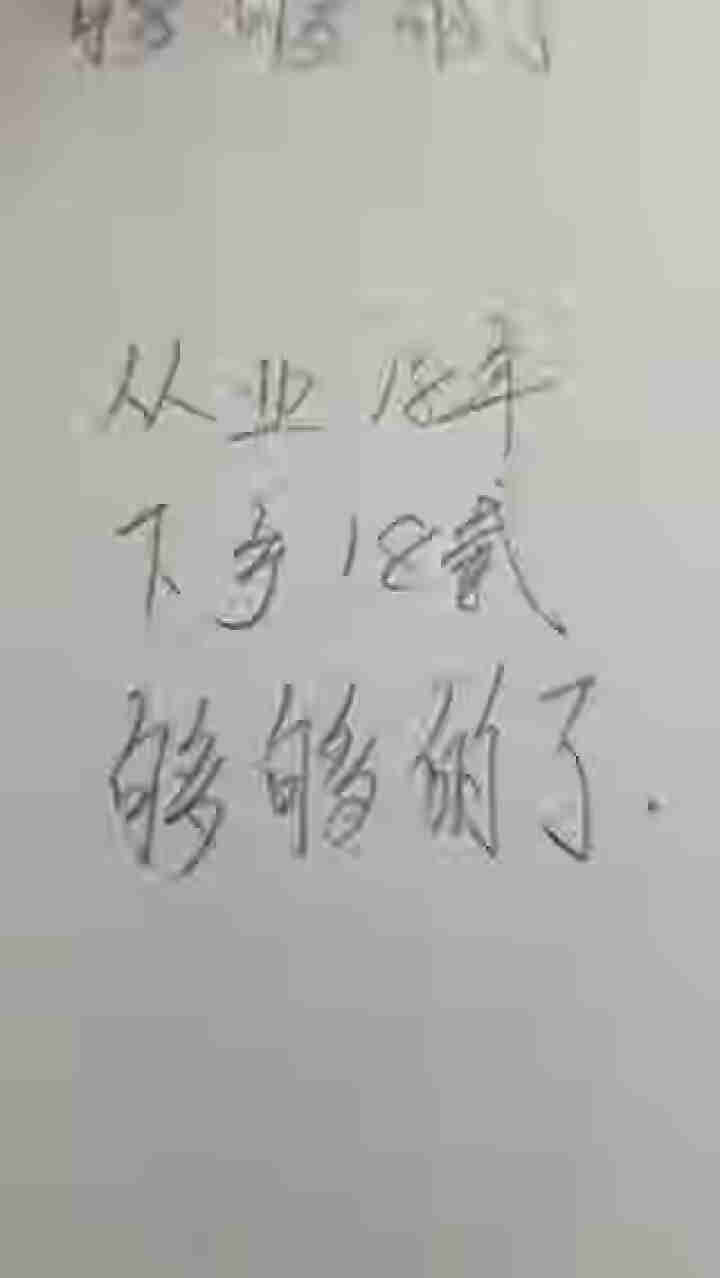 从业18年
下乡18载
够够的了.